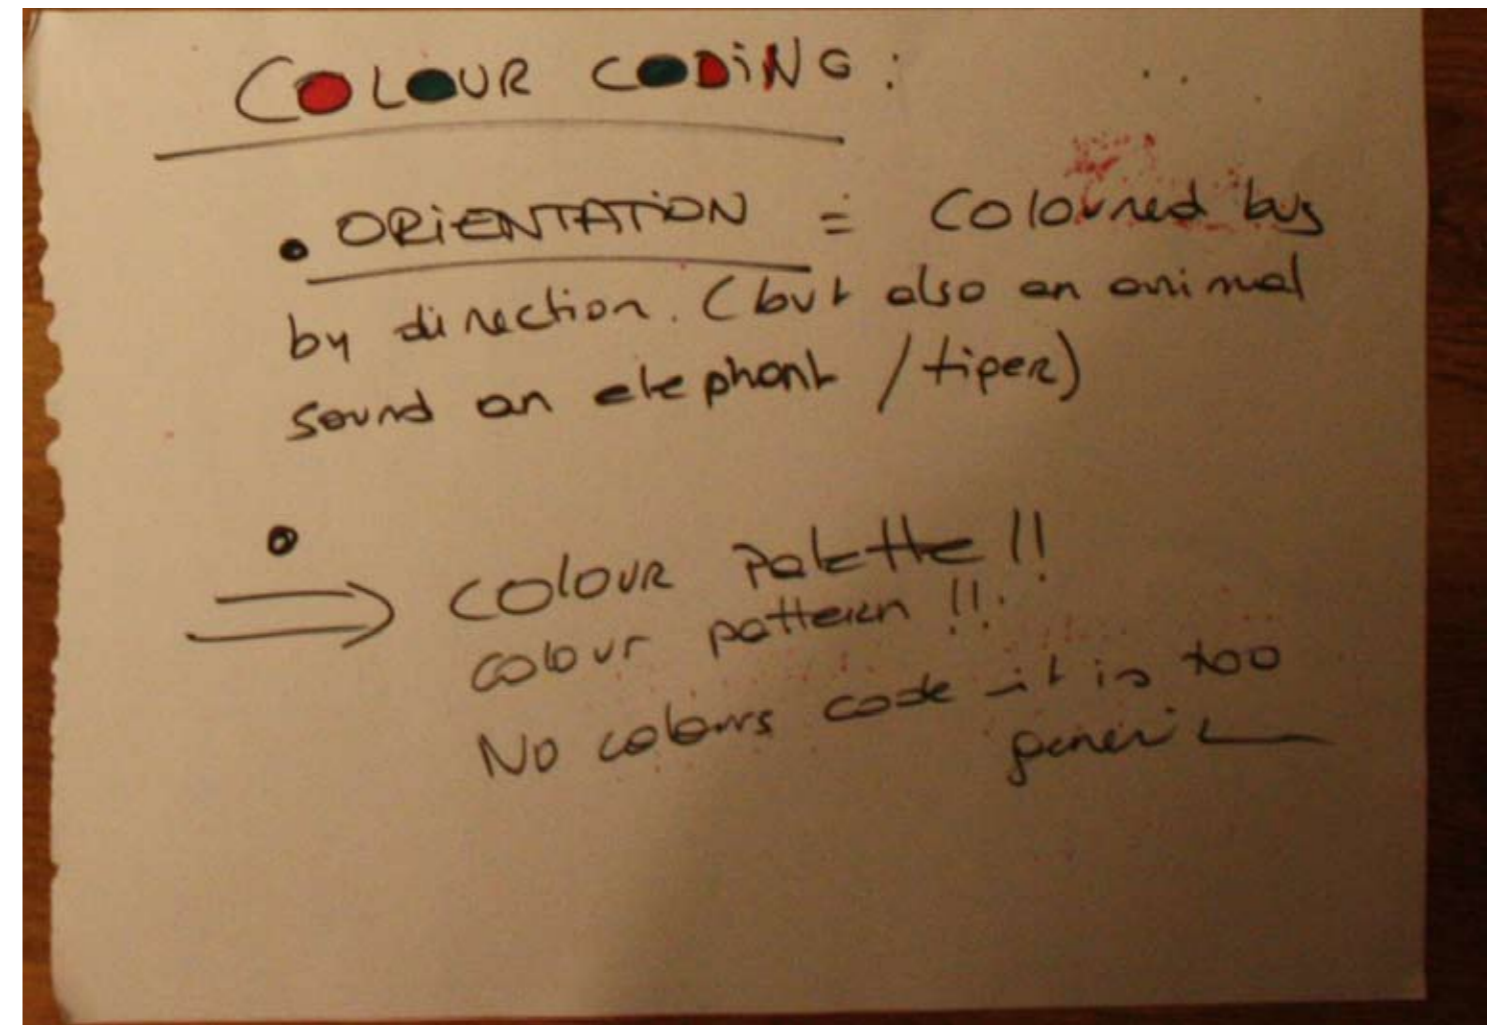 COLOUR CODING:
• ORIENTATION = Coloured bus
by direction. (but also an animal
sound an elephant / tiper)
•
⇒ COLOUR Palette!!
colour pattern !!.
No colours code it is too
generic